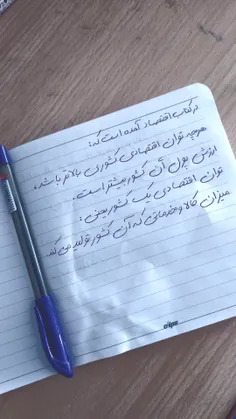 در کتاب اقتصاد آمده است که:
هرچه توان اقتصادی کشوری بالاتر باشد،
ارزش پول آن کشور بیشتر است.
توان اقتصادی یک کشور یعنی:
میزان کالا و خدماتی که آن کشور تولید می کند.